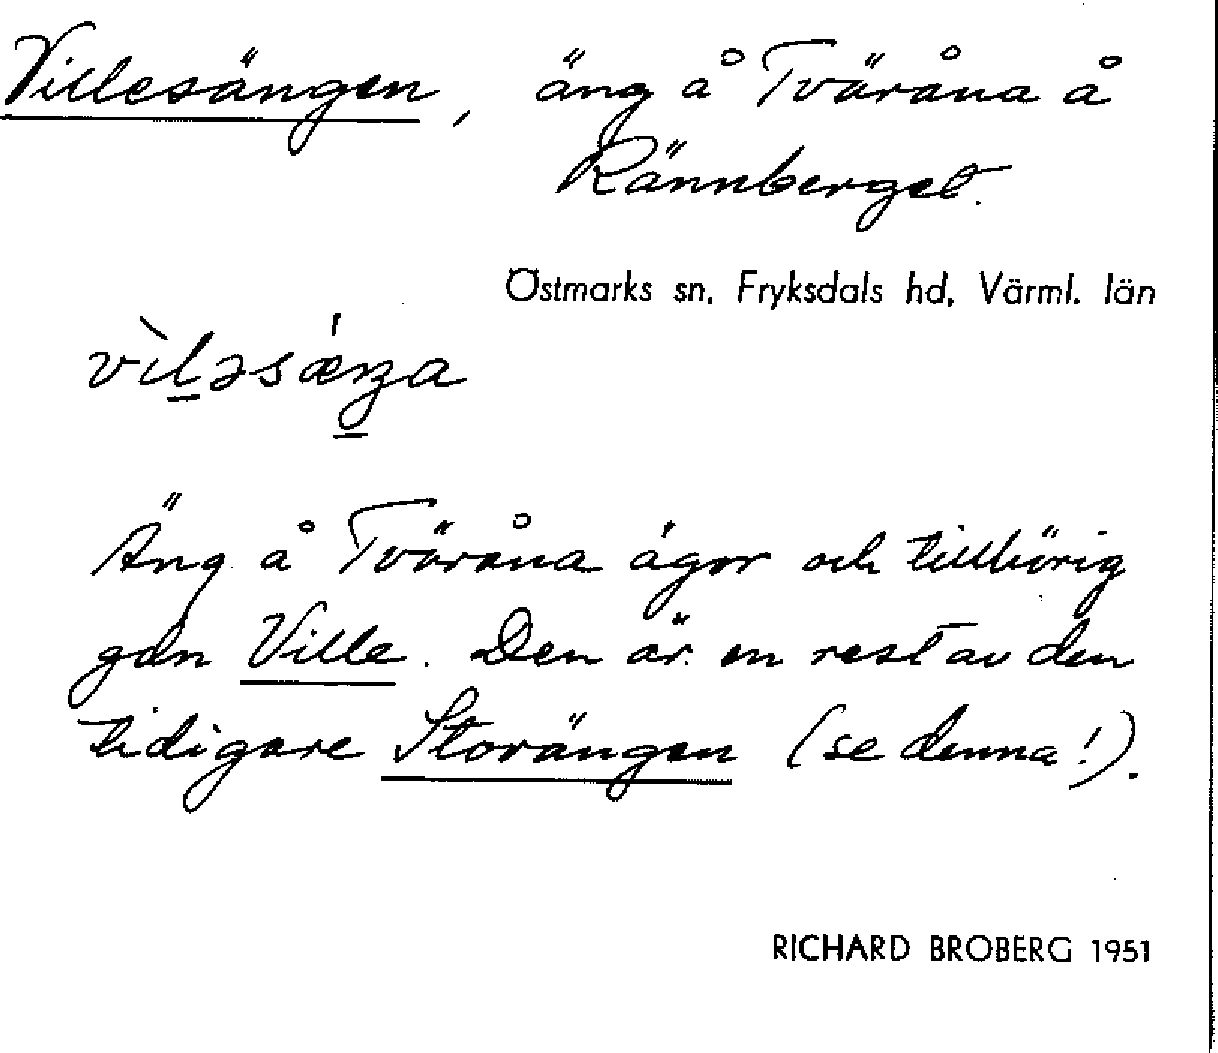 Villesängen, äng å Tväråna å
Rännberget.
Östmarks sn, Fryksdals hd, Värml. län
vìləsǽŋa
Äng å Tväråna ägor och tillhörig
gdn Ville. Den är en rest av den
tidigare Storängen (se denna!).
RICHARD BROBERG 1951